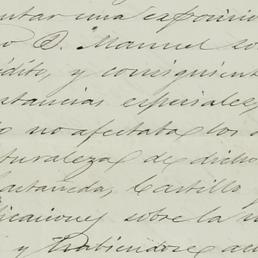 ntar una exposicio
o D. Manuel so
édito, y consiguient
nstancias especiales
o no afectaba los
turaleza de dicho
Castañeda, Castillo
icaciones sobre la
y habiendose au